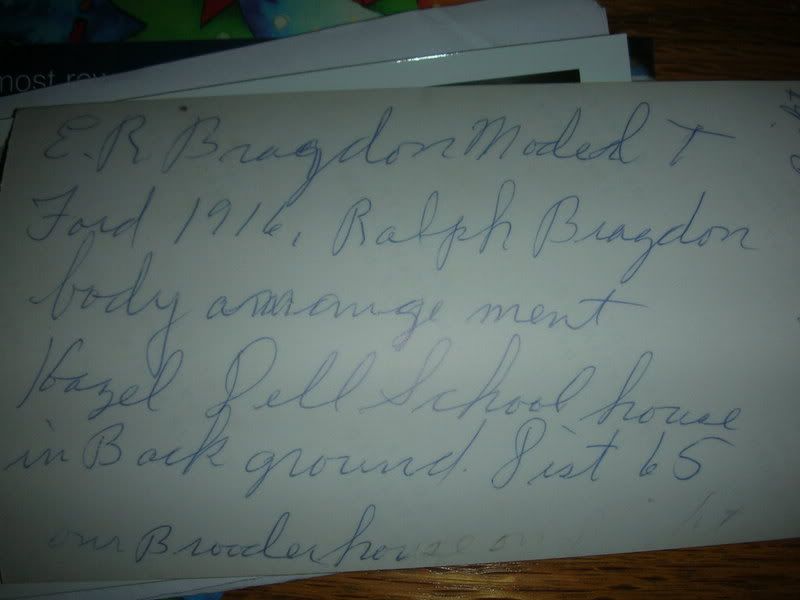 most rev
E. R Bragdon Model T
Ford 1916, Ralph Bragdon
body arrange ment
Hazel Dell School house
in Back ground. Dist 65
our Brooderhouse on